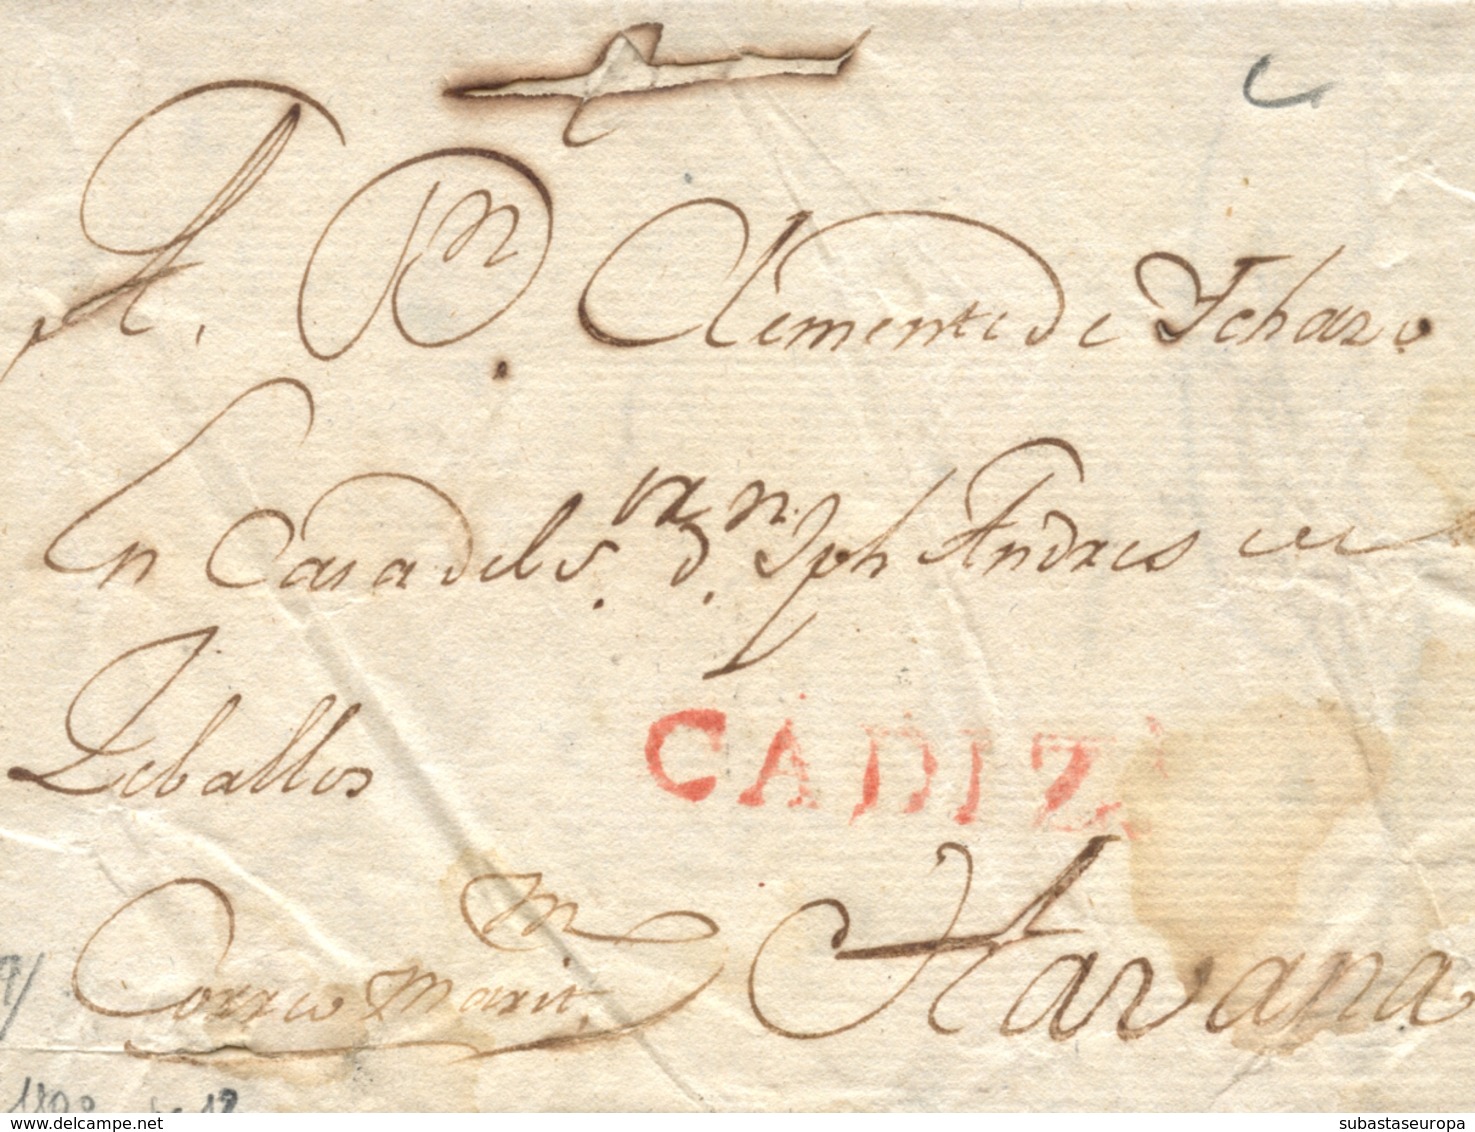 A. Dn. Clemente de Ichazo
En Casa del Sor. dn. Jph Andres
Zeballos
CADIZ
Correo Maritmo Havana
delcampe.net
subastaseuropa